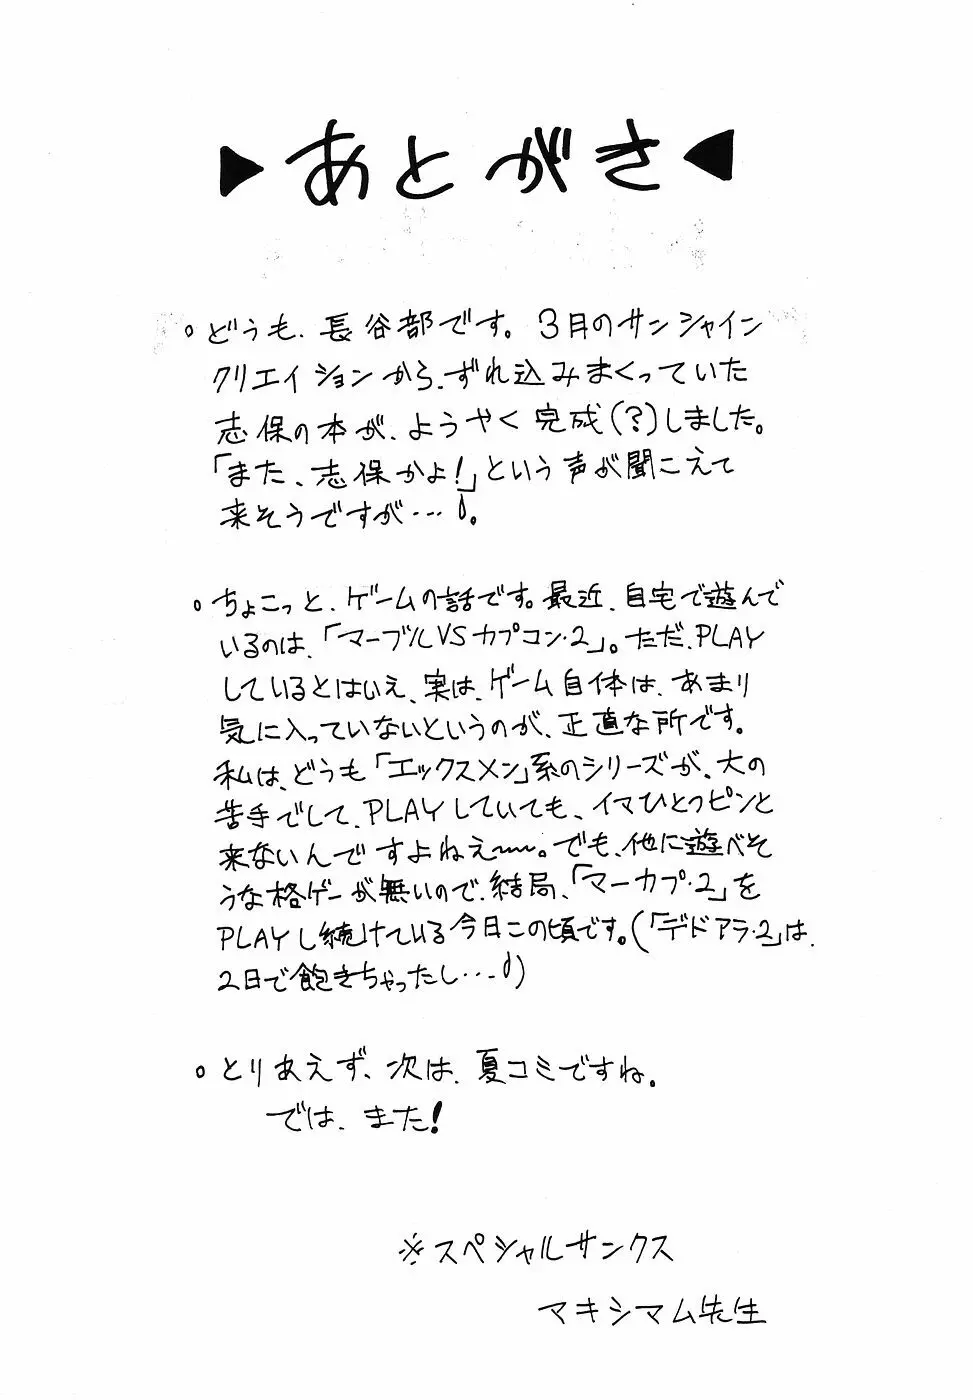 ▶あとがき◀
。どうも、長谷部です。3月のサンシャイン
クリエイションから、ずれ込みまくっていた
志保の本が、ようやく完成(?)しました。
「また、志保かよ!」という声が聞こえて
来そうですが…。
。ちょこっと、ゲームの話です。最近、自宅で遊んで
いるのは、「マーブルVSカプコン・2」。ただ、PLAY
しているとはいえ、実は、ゲーム自体は、あまり
気に入っていないというのが、正直な所です。
私は、どうも「エックスメン」系のシリーズが、大の
苦手でして、PLAYしていても、イマひとつピンと
来ないんですよねえ〜〜。でも、他に遊べそ
うな格ゲーが無いので、結局、「マーカプ・2」を
PLAYし続けている今日この頃です。(「デドアラ・2」は、
2日で飽きちゃったし…)
。とりあえず、次は、夏コミですね。
では、また!
※スペシャルサンクス
マキシマム先生